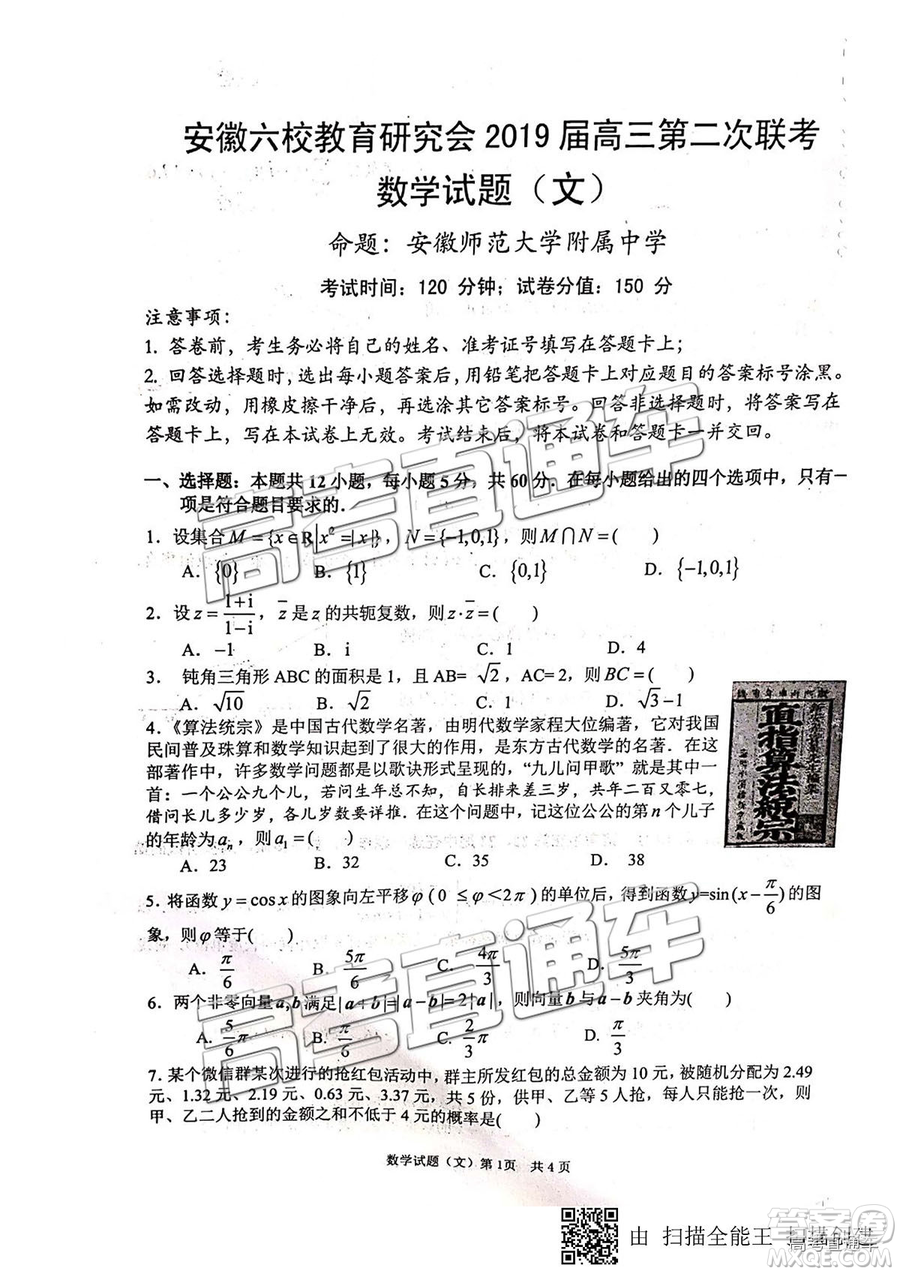 安徽六校教育研究会 2019 届高三第二次联考
数学试题（文）
命题：安徽师范大学附属中学
考试时间：120 分钟；试卷分值：150 分
注意事项：
1. 答卷前，考生务必将自己的姓名、准考证号填写在答题卡上；
2. 回答选择题时，选出每小题答案后，用铅笔把答题卡上对应题目的答案标号涂黑。
如需改动，用橡皮擦干净后，再选涂其它答案标号。回答非选择题时，将答案写在
答题卡上，写在本试卷上无效。考试结束后，将本试卷和答题卡一并交回。
一、选择题：本题共 12 小题，每小题 5 分，共 60 分．在每小题给出的四个选项中，只有一
项是符合题目要求的．
1．设集合 M={x∈R|x²=|x|}，N={-1,0,1}，则 M∩N=(　　)
A．{0}　B．{1}　C．{0,1}　D．{-1,0,1}
2．设 z=(1+i)/(1-i)，z̄ 是 z 的共轭复数，则 z·z̄=(　　)
A．-1　B．i　C．1　D．4
3． 钝角三角形 ABC 的面积是 1，且 AB= √2，AC= 2，则 BC=(　　)
A．√10　B．√2　C．√5　D．√3-1
4．《算法统宗》是中国古代数学名著，由明代数学家程大位编著，它对我国
民间普及珠算和数学知识起到了很大的作用，是东方古代数学的名著．在这
部著作中，许多数学问题都是以歌诀形式呈现的，“九儿问甲歌”就是其中一
首：一个公公九个儿，若问生年总不知，自长排来差三岁，共年二百又零七，
借问长儿多少岁，各儿岁数要详推．在这个问题中，记这位公公的第 n 个儿子
的年龄为 aₙ，则 a₁=(　　)
A．23　B．32　C．35　D． 38
直指算法統宗
5．将函数 y=cos x 的图象向左平移 φ(0 ≤φ<2π) 的单位后，得到函数 y=sin(x-π/6) 的图
象，则 φ 等于(　　)
A．π/6　B．5π/6　C．4π/3　D．5π/3
6．两个非零向量 a,b 满足|a+b|=|a-b|=2|a|，则向量 b 与 a-b 夹角为(　　)
A．5/6 π　B．π/6　C．2/3 π　D．π/3
7．某个微信群某次进行的抢红包活动中，群主所发红包的总金额为 10 元，被随机分配为 2.49
元、1.32 元、2.19 元、0.63 元、3.37 元，共 5 份，供甲、乙等 5 人抢，每人只能抢一次，则
甲、乙二人抢到的金额之和不低于 4 元的概率是(　　)
数学试题（文）第 1页　共 4 页
高考直通车
高考直通车
由 扫描全能王 扫描创建
答案圈
高考直通车
MXQE.COM